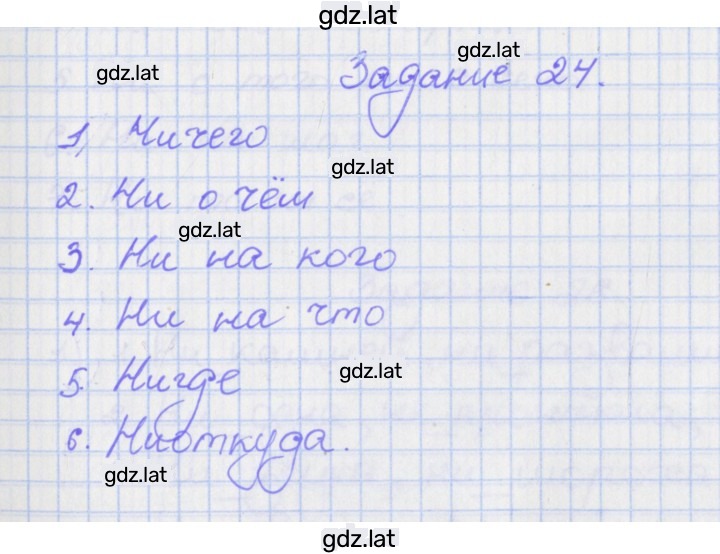 gdz.lat
gdz.lat
gdz.lat
Задание 24.
1, Ничего
gdz.lat
2. Ни о чём
gdz.lat
3. Ни на кого
4. Ни на что
gdz.lat
5. Нигде
6. Ниоткуда.
gdz.lat
gdz.lat